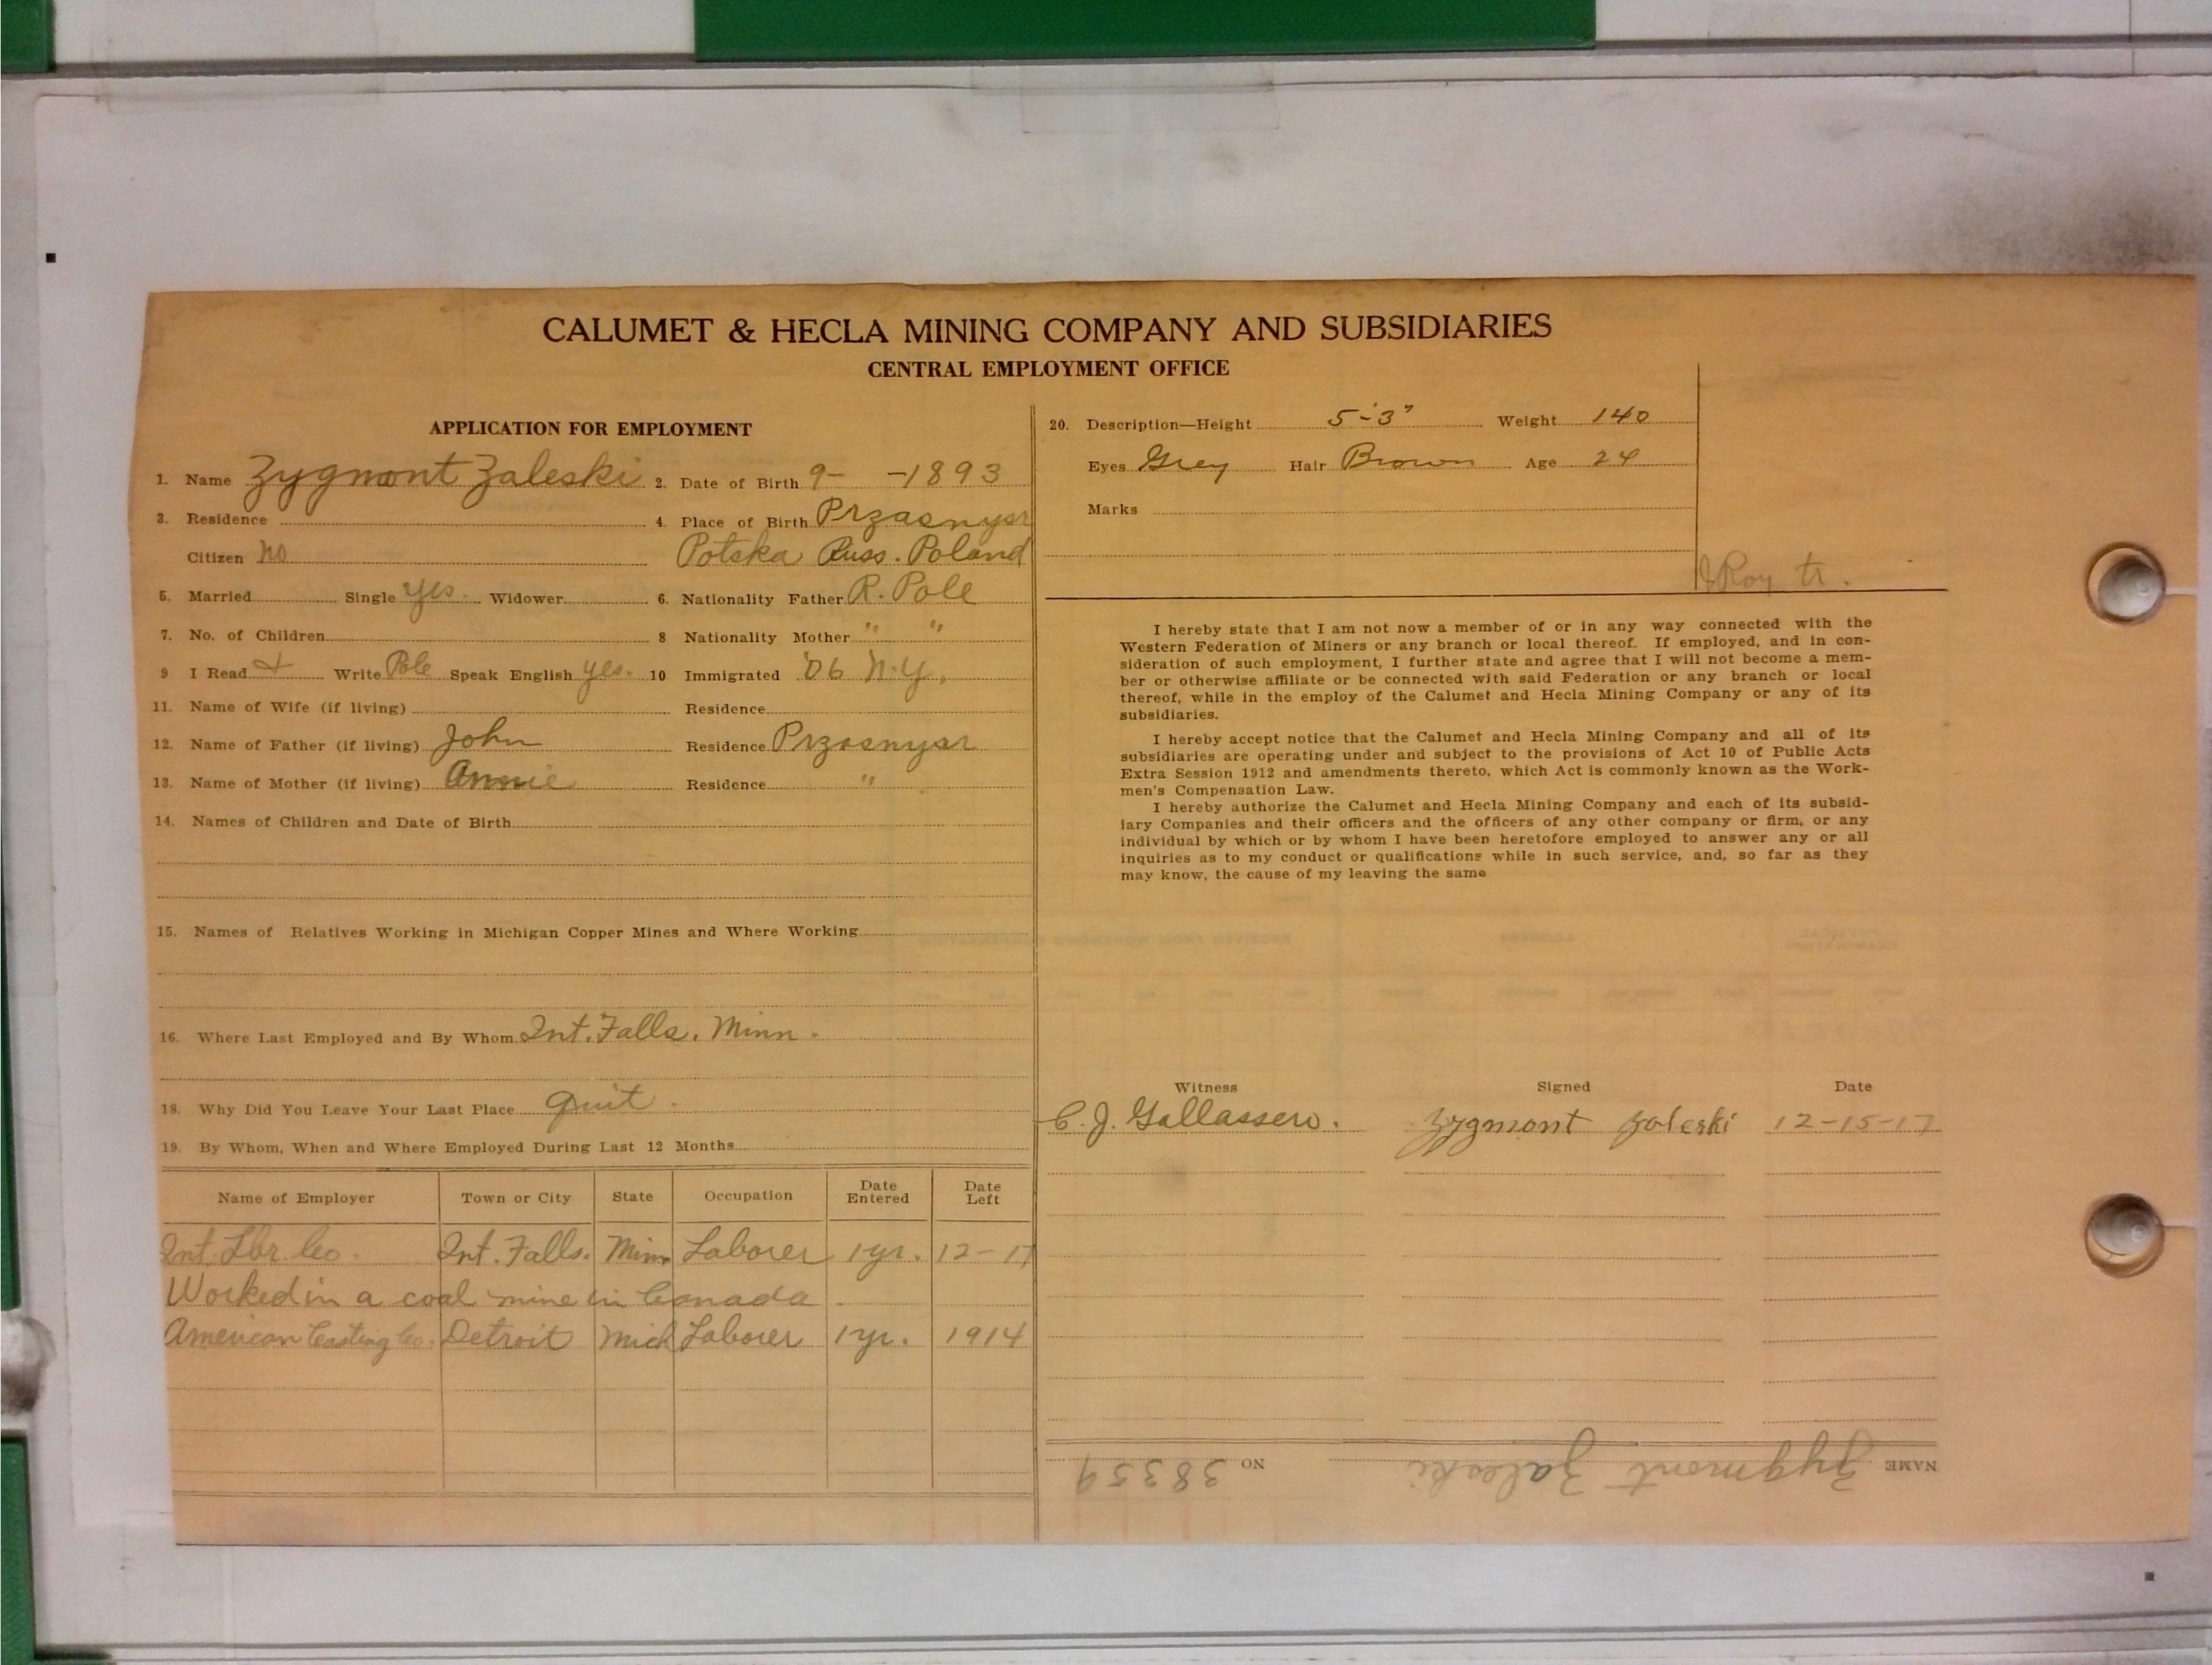 CALUMET & HECLA MINING COMPANY AND SUBSIDIARIES
CENTRAL EMPLOYMENT OFFICE
APPLICATION FOR EMPLOYMENT
1. Name Zygmont Zaleski 2. Date of Birth 9- -1893
3. Residence 4. Place of Birth Przasnysz
Citizen no Potska Russ. Poland
5. Married Single yes. Widower 6. Nationality Father R. Pole
7. No. of Children 8 Nationality Mother " "
9 I Read + Write Pole Speak English yes. 10 Immigrated '06 N.Y.
11. Name of Wife (if living) Residence
12. Name of Father (if living) John Residence Przasnysz
13. Name of Mother (if living) Annie Residence "
14. Names of Children and Date of Birth
15. Names of Relatives Working in Michigan Copper Mines and Where Working
16. Where Last Employed and By Whom Int. Falls. Minn.
18. Why Did You Leave Your Last Place quit.
19. By Whom, When and Where Employed During Last 12 Months
Name of Employer Town or City State Occupation Date Entered Date Left
Int. Lbr. Co. Int. Falls. Minn Laborer 1 yr. 12-17
Worked in a coal mine in Canada.
American Casting Co. Detroit Mich Laborer 1 yr. 1914
20. Description—Height 5-3" Weight 140
Eyes Grey Hair Brown Age 24
Marks
Roy tr.
I hereby state that I am not now a member of or in any way connected with the
Western Federation of Miners or any branch or local thereof. If employed, and in con-
sideration of such employment, I further state and agree that I will not become a mem-
ber or otherwise affiliate or be connected with said Federation or any branch or local
thereof, while in the employ of the Calumet and Hecla Mining Company or any of its
subsidiaries.
I hereby accept notice that the Calumet and Hecla Mining Company and all of its
subsidiaries are operating under and subject to the provisions of Act 10 of Public Acts
Extra Session 1912 and amendments thereto, which Act is commonly known as the Work-
men's Compensation Law.
I hereby authorize the Calumet and Hecla Mining Company and each of its subsid-
iary Companies and their officers and the officers of any other company or firm, or any
individual by which or by whom I have been heretofore employed to answer any or all
inquiries as to my conduct or qualifications while in such service, and, so far as they
may know, the cause of my leaving the same
Witness Signed Date
C. J. Gallassero. Zygmont Zaleski 12-15-17
NAME Zygmont Zaleski NO 38359